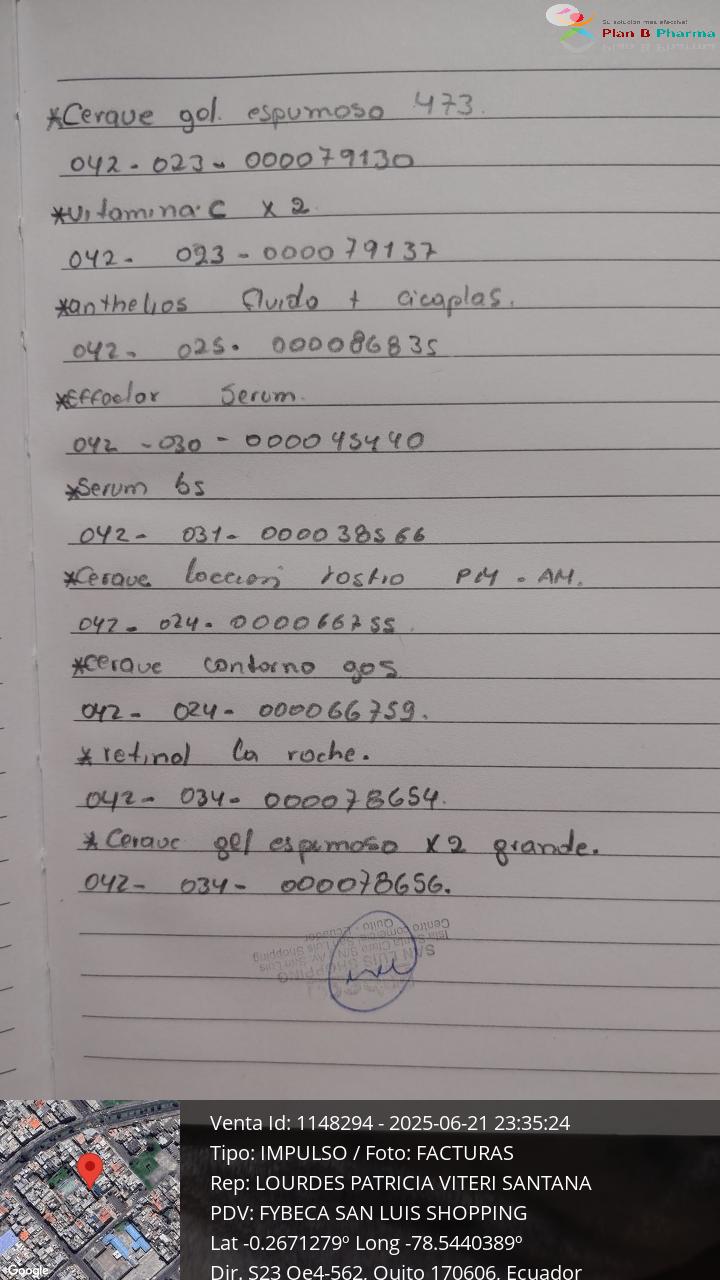 Su solución más efectiva!
Plan B Pharma
*Cerave gol. espumoso 473.
042 - 023 - 000079130
*Vitamina C x 2
042 - 023 - 000079137
*anthelios fluido + cicaplas.
042 - 025 - 000086835
*Effaclar Serum.
042 - 030 - 000045440
*Serum b5
042 - 031 - 000038566
*Cerave loccion rostro PM - AM.
042 - 024 - 000066755
*cerave contorno gos
042 - 024 - 000066759.
*retinol la roche.
042 - 034 - 000078654.
*Cerave gel espumoso x 2 grande.
042 - 034 - 000078656.
SAN LUIS SHOPPING
Quito - Ecuador
Venta Id: 1148294 - 2025-06-21 23:35:24
Tipo: IMPULSO / Foto: FACTURAS
Rep: LOURDES PATRICIA VITERI SANTANA
PDV: FYBECA SAN LUIS SHOPPING
Lat -0.2671279º Long -78.5440389º
Dir. S23 Oe4-562, Quito 170606, Ecuador
Google